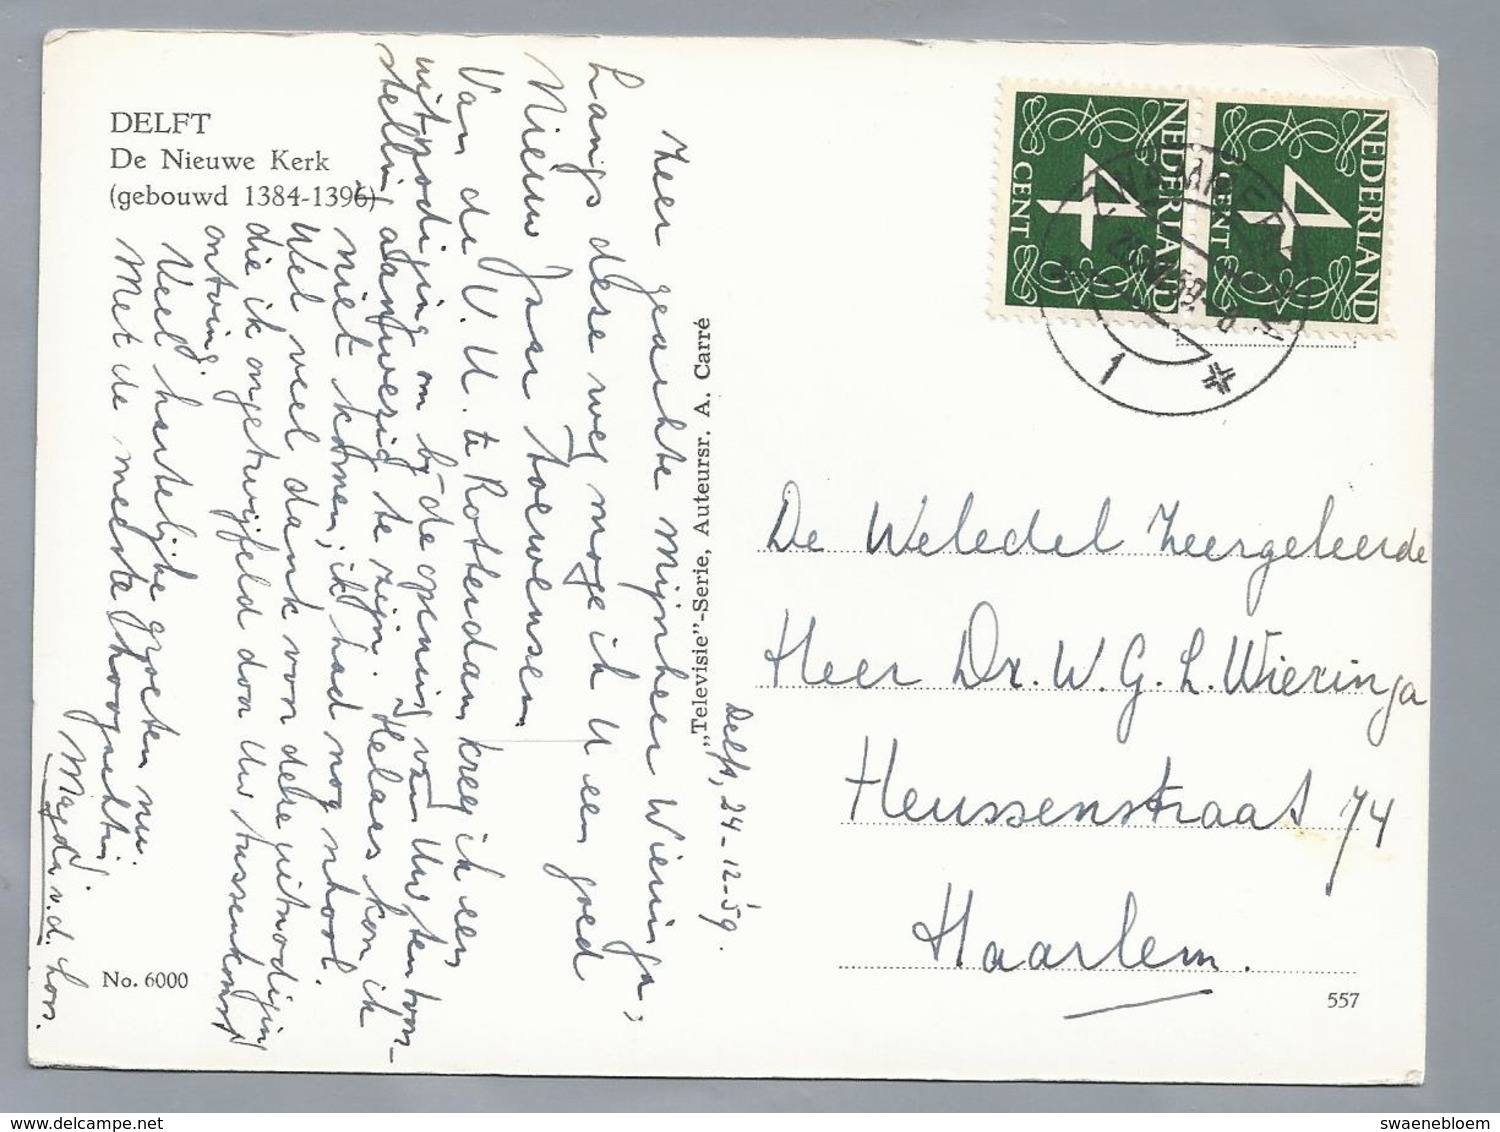 DELFT
De Nieuwe Kerk
(gebouwd 1384-1396)
Delft, 24-12-'59.
Zeer geachte mijnheer Wieringa,
Langs deze weg moge ik U een goed
Nieuw Jaar toewensen.
Van de V.U. te Rotterdam kreeg ik een
uitnodiging om bij de opening van Uw tentoon-
stelling aanwezig te zijn. Helaas kon ik
niet komen, ik had nog school.
Wel veel dank voor deze uitnodiging
die ik ongetwijfeld door Uw tussenkomst
ontving.
Veel hartelijke groeten nu.
Met de meeste hoogachting
Magda v.d. Loo.
No. 6000
„Televisie”-Serie, Auteursr. A. Carré
NEDERLAND
4
CENT
NEDERLAND
4
CENT
1
De Weledel Zeergeleerde
Heer Dr. W. G. L. Wieringa
Heussenstraat 74
Haarlem.
557
www.delcampe.net
swaenebloem